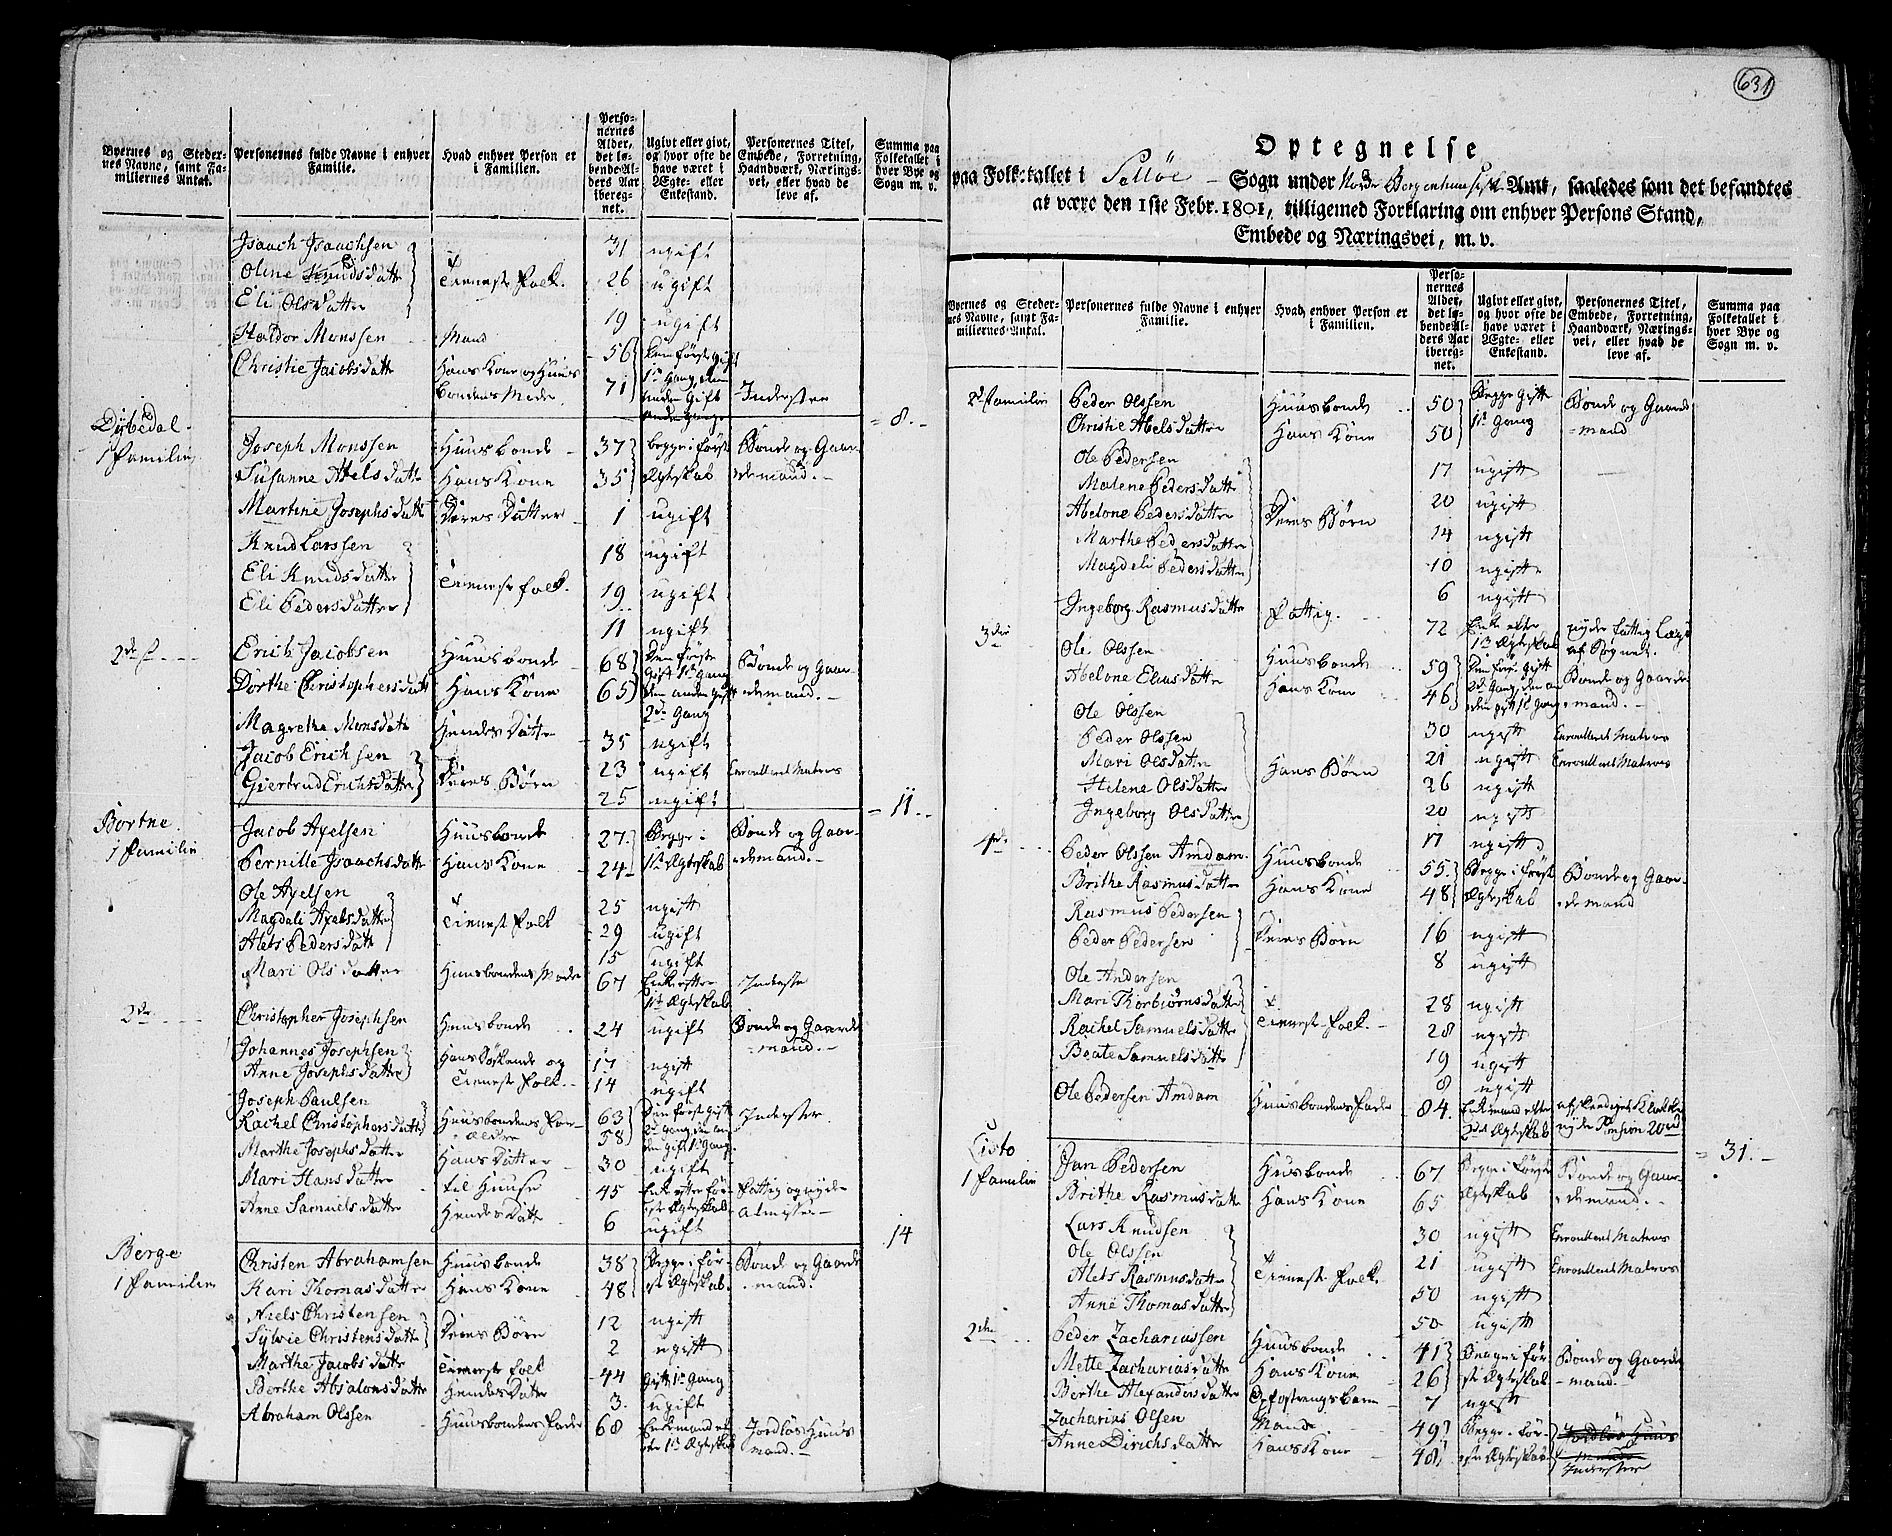 631
Byernes og Steder-
nes Navne, samt Fa-
miliernes Antal.
Personernes fulde Navne i enhver
Familie.
Hvad enhver Person er
i Familien.
Perso-
nernes
Alder,
det lø-
bende Al-
ders Aar
iberег-
net.
Ugivt eller givt,
og hvor ofte de
have været i
Ægte- eller
Enkestand.
Personernes Titel,
Embede, Forretning,
Haandværk, Nærings-
vei, eller hvad de
leve af.
Summa paa
Folketallet i
hver Bye og
Sogn m. v.
Isaach Isaachsen 31 ugift
Oline Knudsdatter Tienestfolk. 26 ugift
Eli Olsdatter 19 ugift
Haldor Monssen Mand 56 den første gift
Christie Jacobsdatter Hans Kone og Huus 71 1te Gang, den Inderster
bondens Moder. anden Gift
8.
Dybedal
1 Familie Joseph Monssen Huusbonde 37 begge i første Bonde og Gaar-
Susanne Abelsdatter Hans Kone 35 Ægteskab demand.
Martine Josephsdatter Deres Datter 1 ugift
Knud Larssen 18 ugift
Eli Knudsdatter Tienestfolk. 19 ugift
Eli Pedersdatter 11 ugift
2de F. Erich Jacobsen Huusbonde 68 Den første Bonde og Gaar-
gift 1te Gang
Dorthe Christophersdatt Hans Kone 65 den anden gift demand.
2de Gang
Magrethe Monsdatter Hendes Datter 35 ugift
Jacob Erichsen 23 ugift Enroulleret Matros
Giertrud Erichsdatter Deres Børn 25 ugift
11.
Bortne
1 Familie Jacob Axelsen Huusbonde 27. Begge i Bonde og Gaar-
Pernille Isaachsdatter Hans Kone 24 1te Ægteskab demand.
Ole Axelsen 25 ugift
Magdali Axelsdatter Tienestfolk 29 ugift
Alets Pedersdatter 15 ugift
Mari Olsdatter Huusbondens Moder 67 Enke efter Inderste
1te Ægteskab
2den Christopher Josephsen Huusbonde 24 ugift Bonde og Gaarde
mand.
Johannes Josephsen Hans Søskende og 17 ugift
Anne Josephsdatter Tienestfolk. 14 ugift
Joseph Paulsen Huusbondens For- 63 Den første gift Inderster
Rachel Christophersdatter ældre 58 2d Gang, den an
den gift 1te Gang.
Marthe Josephsdatter Hans Datter 30 ugift
Mari Hansdatter til Huuse 45 Enke efter før- Fattig og nyder
ste Ægteskab Almisse
Anne Samuelsdatter Hendes Datter 6 ugift
14
Berge
1 Familie Christen Abrahamsen Huusbonde 38 Begge i før- Bonde og Gaarde
Kari Thomasdatter Hans Kone 48 ste Ægteskab mand.
Niels Christensen 12 ugift
Sylvie Christensdatter Deres Børn 2 ugift
Marthe Jacobsdatter Tienestfolk 44 Gift 1te Gang
Berthe Absalonsdatter Hendes Datter 3. ugift
Abraham Olssen Huusbondens Fader 68 Enkemand ef Jordløs Huus
ter 1te Ægteskab mand.
Optegnelse
paa Folketallet i Selløe Sogn under Nordre Bergenhuusiske Amt, saaledes som det befandtes
at være den 1ste Febr. 1801, tilligemed Forklaring om enhver Persons Stand,
Embede og Næringsvei, m. v.
Byernes og Steder-
nes Navne, samt Fa-
miliernes Antal.
Personernes fulde Navne i enhver
Familie.
Hvad enhver Person er
i Familien.
Perso-
nernes
Alder,
det lø-
bende Al-
ders Aar
ibereg-
net.
Ugivt eller givt,
og hvor ofte de
have været i
Ægte- eller
Enkestand.
Personernes Titel,
Embede, Forretning,
Haandværk, Nærings-
vei, eller hvad de
leve af.
Summa paa
Folketallet i
hver Bye og
Sogn m. v.
2d Familie Peder Olssen Huusbonde 50 Begge Gifte Bonde og Gaarde
Christie Abelsdatter Hans Kone 50 1te Gang mand
Ole Pedersen 17 ugift
Malene Pedersdatter 20 ugift
Abelone Pedersdatter Deres Børn 14 ugift
Marthe Pedersdatter 10 ugift
Magdeli Pedersdatter 6 ugift
Ingeborg Rasmusdatter Fattig. 72 Enke efter nyder fattig Lægd
1te Ægteskab af Sognet.
3die Ole Olssen Huusbonde 59 Den før. gift Bonde og Gaarde
Abelone Eliasdatter Hans Kone 46 2d Gang, den an mand.
den gift 1te Gang
Ole Olssen 30 ugift Enroulleret Matros
Peder Olssen 21 ugift Enroulleret Matros
Mari Olsdatter Hans Børn 26 ugift
Helene Olsdatter 20 ugift
Ingeborg Olsdatter 17 ugift
4de Peder Olssen Amdam Huusbonde 55. Begge i første Bonde og Gaar-
Brithe Rasmusdatter Hans Kone 48 Ægteskab demand
Rasmus Pedersen 16 ugift
Peder Pedersen Deres Børn 8 ugift
Ole Andersen 28 ugift
Mari Thorbiørnsdatter Tienest-Folk. 28 ugift
Rachel Samuelsdatter 19 ugift
Beate Samuelsdatter 8 ugift
Ole Pedersen Amdam Huusbondens Fader 84. Enkemand efter afskediget Klokker
2det Ægteskab nyder Pension 20rd
31.
Cisto
1 Familie Jan Pedersen Huusbonde 67 Begge i første Bonde og Gaar-
Brithe Rasmusdatter Hans Kone 65 Ægteskab demand.
Lars Knudsen 30 ugift Enroulleret Matros
Ole Olssen 21 ugift Enroulleret Matros
Alets Rasmusdatter Tienest-Folk. 50 ugift
Anne Thomasdatter 50 ugift
2den Peder Zachariassen Huusbonde 41 Begge i før Bonde og Gaarde
Mette Zachariasdatter Hans Kone 26 ste Ægteskab mand.
Berthe Alexandersdatter Opfostringsbarn 7 ugift
Zacharias Olsen Mand 49 Begge i før- Jordløs Huus
Anne Dirichsdatter Hans Kone 48 ste Ægteskab mand
Inderster